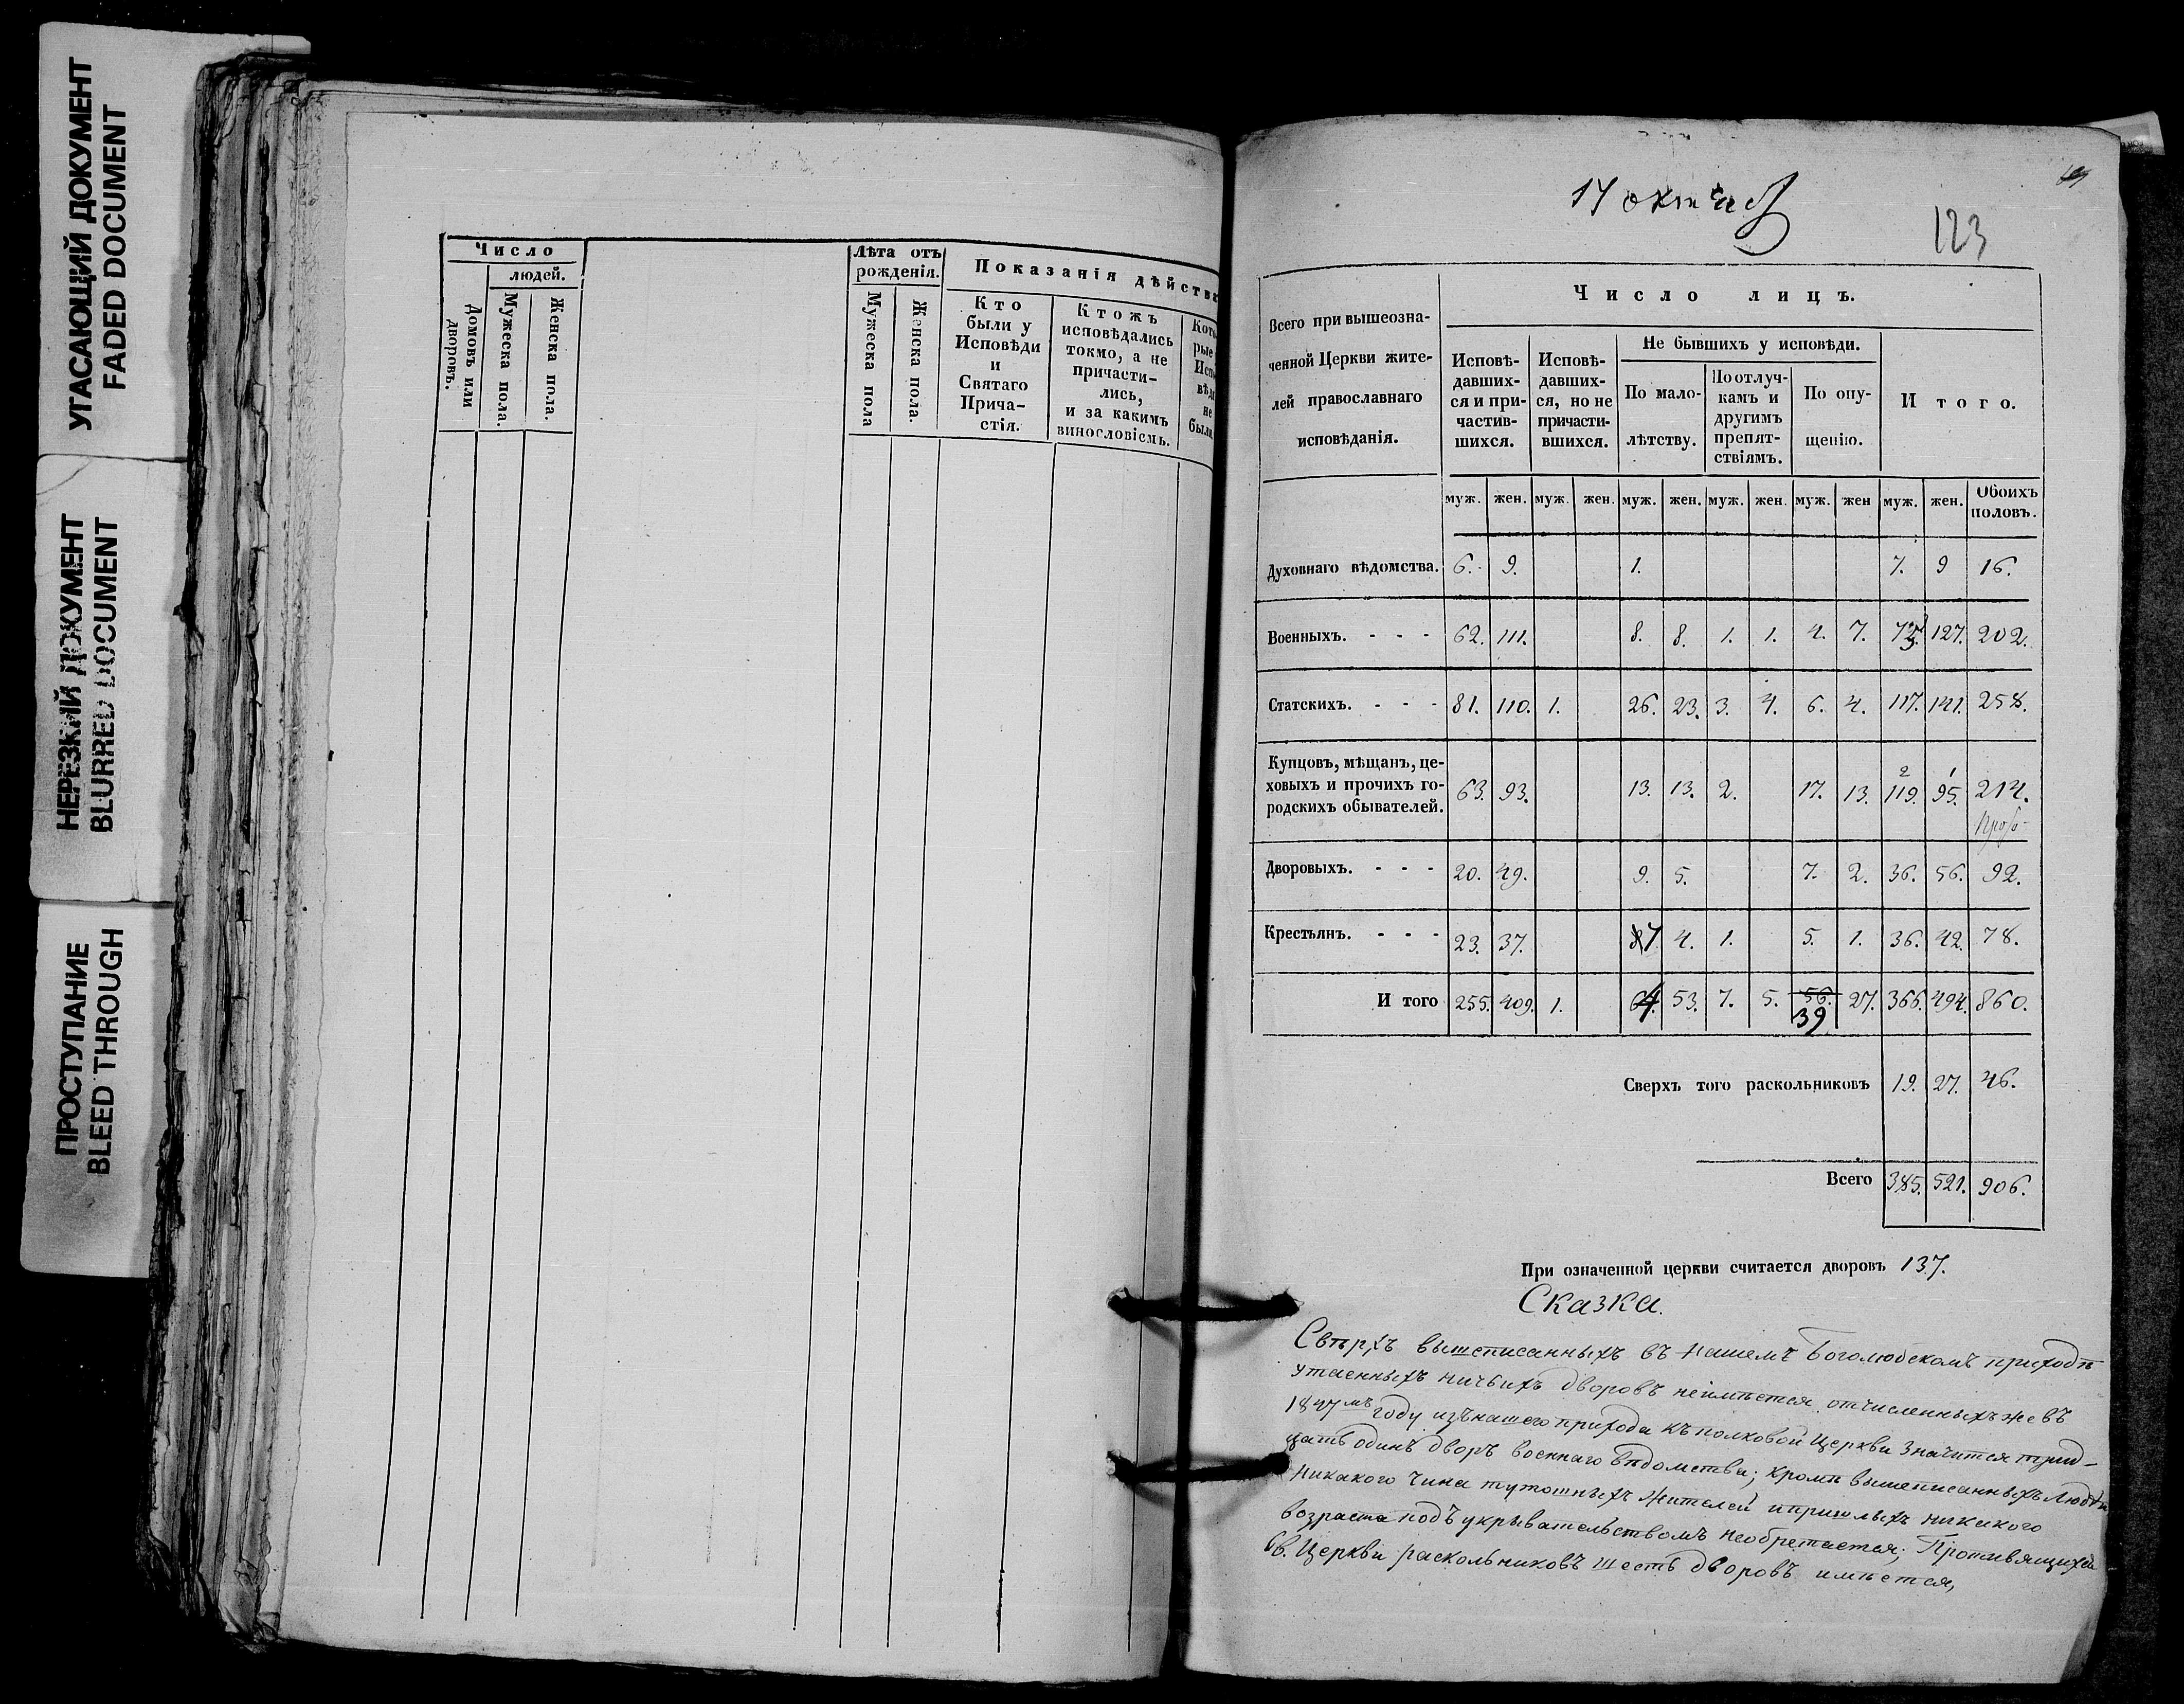 УГАСАЮЩИЙ ДОКУМЕНТ
FADED DOCUMENT
НЕРЕЗКИЙ ДОКУМЕНТ
BLURRED DOCUMENT
ПРОСТУПАНИЕ
BLEED THROUGH
Число
людей.
Домовъ или дворовъ.
Мужеска пола.
Женска пола.
Лѣта отъ
рожденія.
Мужеска пола
Женска пола.
Показанія дѣйств
Кто
были у
Исповѣди
и
Святаго
Прича-
стія.
Ктожъ
исповѣдались
токмо, а не
причасти-
лись,
и за какимъ
винословіемъ.
Кото
рые
Испо
вѣд
не
были
17 октяб
123
Всего при вышеозна-
ченной Церкви жите-
лей православнаго
исповѣданія.
Число лицъ.
Исповѣ-
давших-
ся и при-
частив-
шихся.
Исповѣ-
давших-
ся, но не
причасти-
вшихся.
Не бывшихъ у исповѣди.
По мало-
лѣтству.
По отлуч-
камъ и
другимъ
препят-
ствіямъ.
По опу-
щенію.
Итого.
муж. жен. муж. жен. муж. жен. муж. жен. муж. жен муж. жен. Обоихъ
половъ.
Духовнаго вѣдомства. 6. 9. 1. 7. 9 16.
Военныхъ. - - - 62. 111. 8. 8. 1. 1. 4. 7. 75. 127. 202.
Статскихъ. - - - 81. 110. 1. 26. 23. 3. 4. 6. 4. 117. 141. 258.
Купцовъ, мѣщанъ, це-
ховыхъ и прочихъ го-
родскихъ обывателей. 63. 93. 13. 13. 2. 17. 13. 119. 95. 214.
Дворовыхъ. - - - 20. 49. 9. 5. 7. 2. 36. 56. 92.
Крестьянъ. - - - 23. 37. 7. 4. 1. 5. 1. 36. 42. 78.
И того 255. 409. 1. 64. 53. 7. 5. 56. 27. 366. 494. 860.
39
Сверхъ того раскольниковъ 19. 27. 46.
Всего 385. 521. 906.
При означенной церкви считается дворовъ 137.
Сказка.
Свѣрхъ вышеписанныхъ въ нашемъ Боголюбскомъ приходѣ
утаенныхъ ничьихъ дворовъ неимѣется, отчисленныхъ же въ
1847мъ году изъ нашего прихода къ полковой Церкви значится трид-
цать одинъ дворъ военнаго вѣдомства; кромѣ вышеписанныхъ людей
никакого чина тутошныхъ жителей и пришлыхъ никакого
возраста подъ укрывательствомъ необретается; Противящихся
Св. Церкви раскольниковъ шесть дворовъ имѣется,